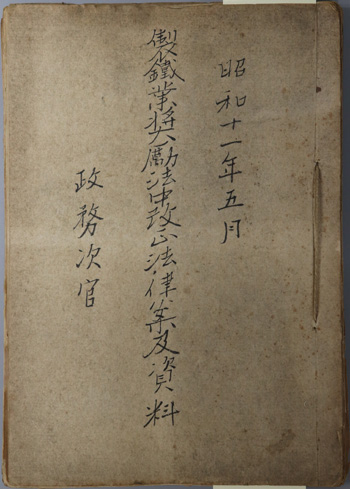 昭和十一年五月
製鐵業奬勵法中改正法律案及資料
政務次官